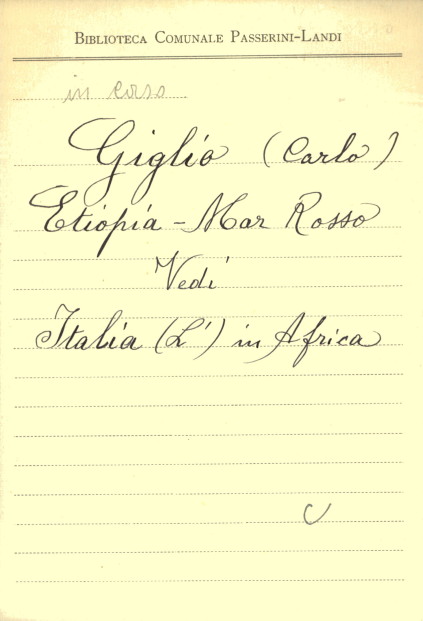 BIBLIOTECA COMUNALE PASSERINI-LANDI
in corso
Giglio (Carlo)
Etiopia - Mar Rosso
Vedi
Italia (L') in Africa
C